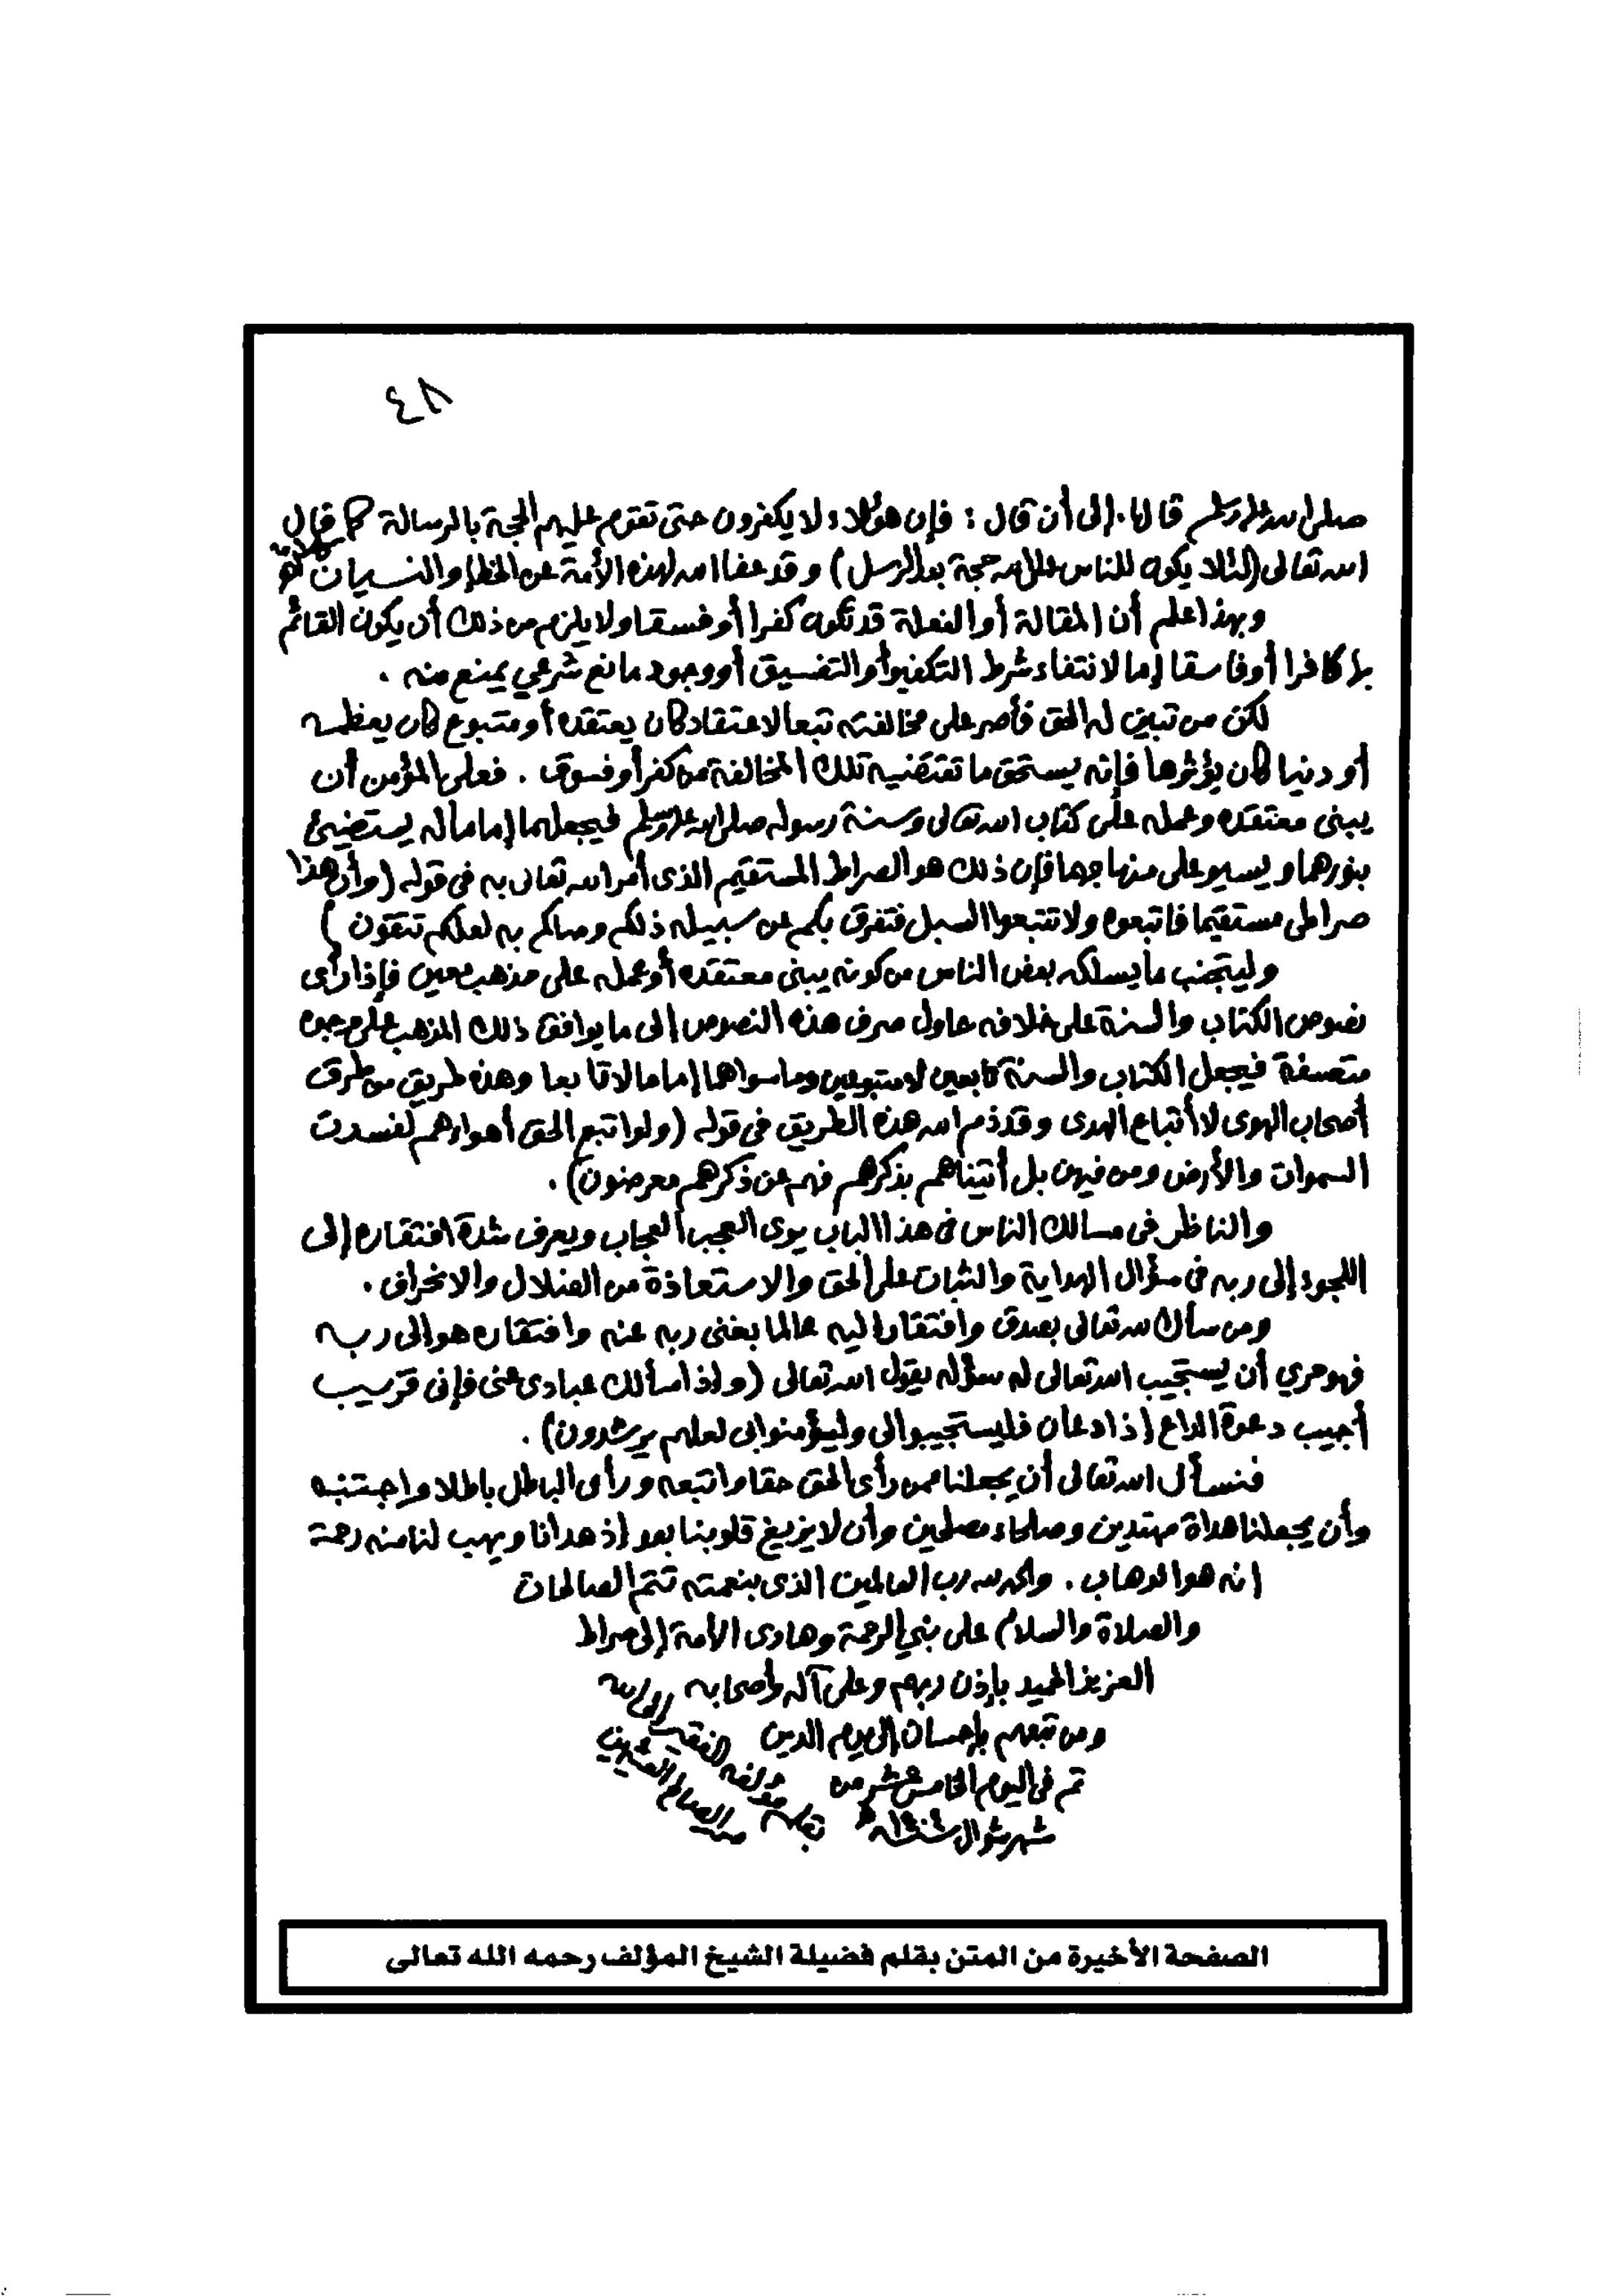 ٨٤
صلى الله عليه وسلم قالها. إلى أن قال : فإن هؤلاء لا يكفرون حتى تقوم عليهم الحجة بالرسالة كما قال
الله تعالى (لئلا يكون للناس على الله حجة بعد الرسل) وقد عفا الله لهذه الأمة عن الخطإ والنسيان
وبهذا علم أن المقالة أو الفعلة قد تكون كفرا أو فسقا ولا يلزم من ذلك أن يكون القائم
بها كافرا أو فاسقا إما لانتفاء شرط التكفير أو التفسيق أو وجود مانع شرعي يمنع منه .
لكن من تبين له الحق فأصر على مخالفته تبعا لاعتقاد كان يعتقده أو متبوع كان يعظمه
أو دنيا كان يؤثرها فإنه يستحق ما تقتضيه تلك المخالفة من كفر أو فسوق . فعلى المؤمن أن
يبني معتقده وعمله على كتاب الله تعالى وسنة رسوله صلى الله عليه وسلم فيجعلهما إماما له يستضيئ
بنورهما ويسير على منهاجهما فإن ذلك هو الصراط المستقيم الذى أمر الله تعالى به فى قوله (وأن هذا
صراطى مستقيما فاتبعوه ولا تتبعوا السبل فتفرق بكم عن سبيله ذلكم وصاكم به لعلكم تتقون )
وليتجنب ما يسلكه بعض الناس من كونه يبنى معتقده أو عمله على مذهب معين فإذا رأى
نصوص الكتاب والسنة على خلافه حاول صرف هذه النصوص إلى ما يوافق ذلك المذهب على وجوه
متعسفة فيجعل الكتاب والسنة تابعين لا متبوعين وما سواهما إماما لا تابعا وهذه طريق من طرق
أصحاب الهوى لا أتباع الهدى وقد ذم الله هذه الطريق فى قوله (ولو اتبع الحق أهواءهم لفسدت
السموات والأرض ومن فيهن بل أتيناهم بذكرهم فهم عن ذكرهم معرضون) .
والناظر فى مسالك الناس فى هذا الباب يرى العجب العجاب ويعرف شدة افتقاره إلى
اللجوء إلى ربه فى سؤال الهداية والثبات على الحق والاستعاذة من الضلال والانحراف .
ومن سأل الله تعالى بصدق وافتقار إليه عالما بغنى ربه عنه وافتقاره هو إلى ربه
فهو حري أن يستجيب الله تعالى له سؤله يقول الله تعالى (وإذا سألك عبادى عنى فإنى قريب
أجيب دعوة الداع إذا دعان فليستجيبوا لى وليؤمنوا بى لعلهم يرشدون) .
فنسأل الله تعالى أن يجعلنا ممن رأى الحق حقا واتبعه ورأى الباطل باطلا واجتنبه
وأن يجعلنا هداة مهتدين وصلحاء مصلحين وأن لا يزيغ قلوبنا بعد إذ هدانا ويهب لنا منه رحمة
إنه هو الوهاب . والحمد لله رب العالمين الذى بنعمته تتم الصالحات
والصلاة والسلام على نبي الرحمة وهادى الأمة إلى صراط
العزيز الحميد بإذن ربهم وعلى آله وأصحابه
ومن تبعهم بإحسان إلى يوم الدين
تم فى اليوم الخامس عشر من
شهر شوال سنة ١٤٠٤هـ
بقلم مؤلفه الفقير إلى الله
محمد الصالح العثيمين
الصفحة الأخيرة من المتن بقلم فضيلة الشيخ المؤلف رحمه الله تعالى